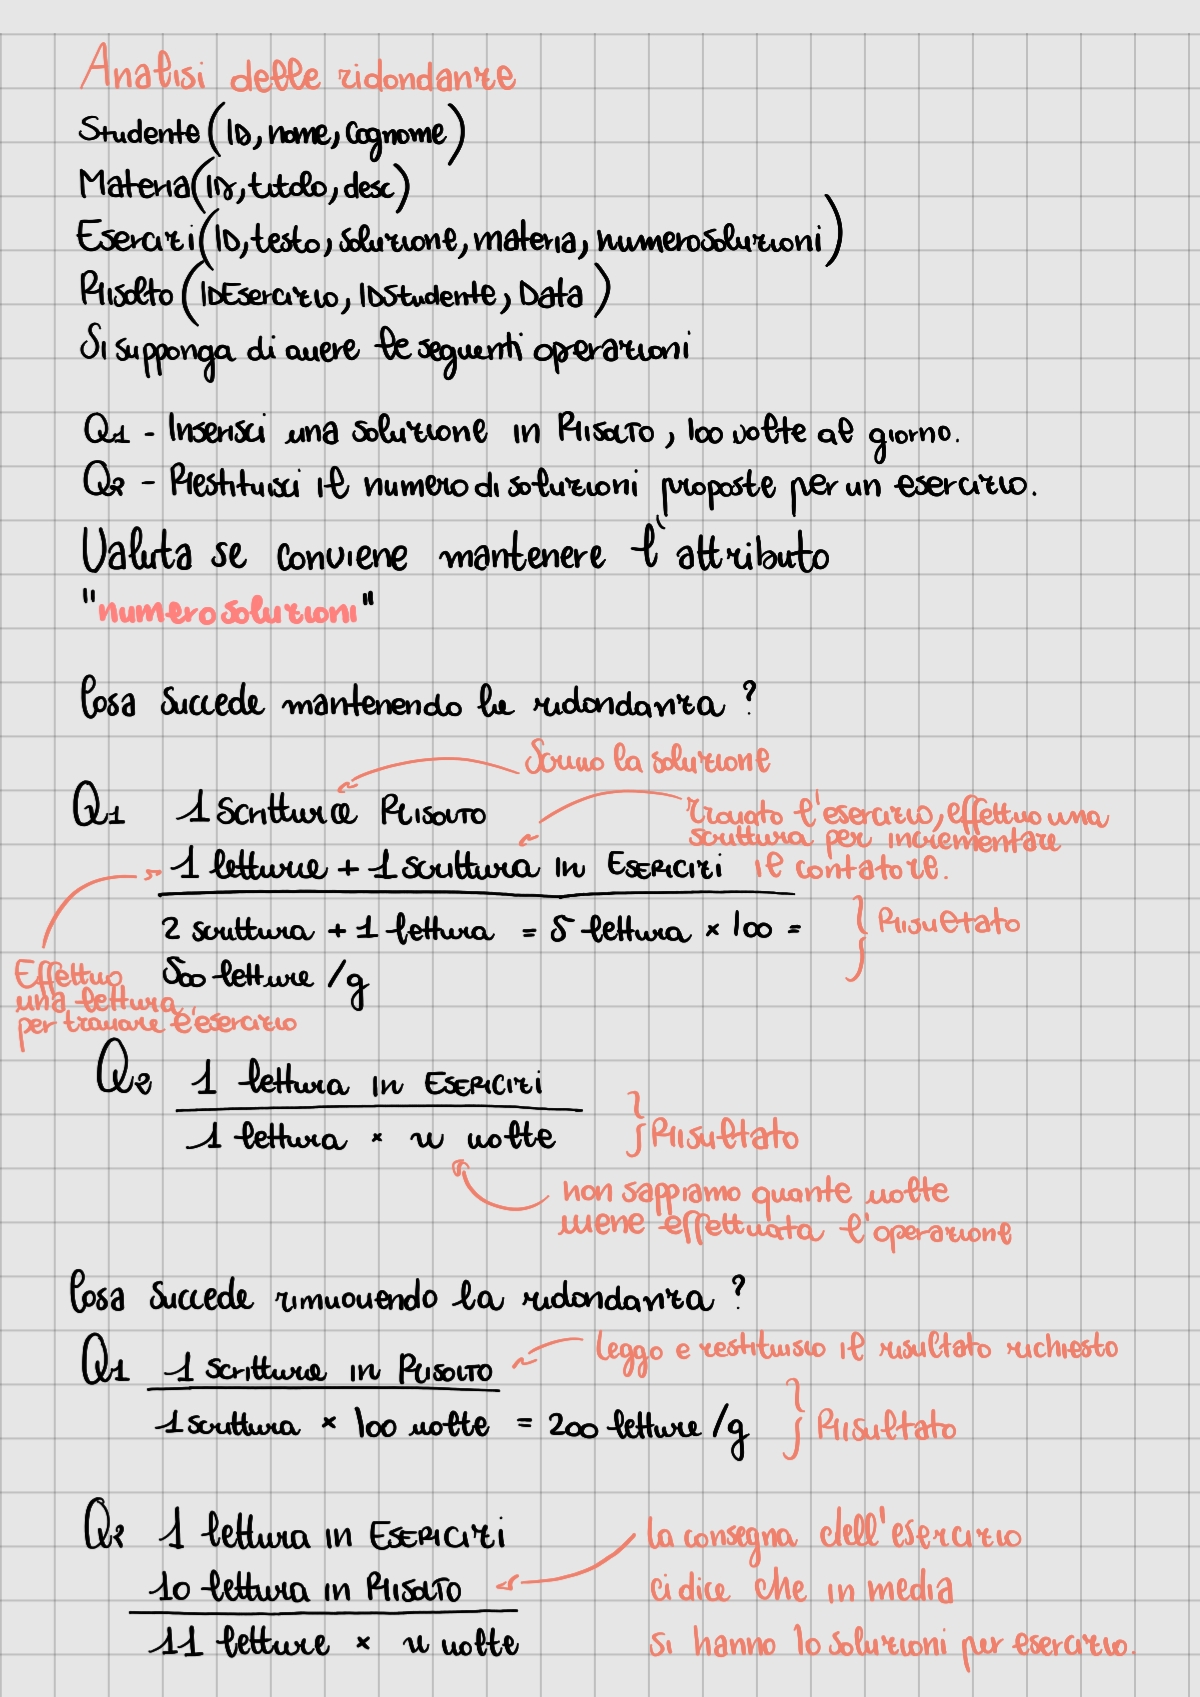 Analisi delle ridondanze
Studente (ID, nome, Cognome)
Materia (ID, titolo, desc)
Esercizi (ID, testo, soluzione, materia, numerosoluzioni)
Risolto (IDEsercizio, IDStudente, Data)
Si supponga di avere le seguenti operazioni
Q1 - Inserisci una soluzione in RISOLTO, 100 volte al giorno.
Q2 - Restituisci il numero di soluzioni proposte per un esercizio.
Valuta se conviene mantenere l'attributo
"numero soluzioni"
Cosa succede mantenendo le ridondanza?
Scrivo la soluzione
Q1 1 Scritture RISOLTO
trovato l'esercizio, effettuo una
scrittura per incrementare
il contatore.
1 letture + 1 scrittura in ESERCIZI
2 scrittura + 1 lettura = 5 lettura × 100 =
500 letture /g
} Risultato
Effettuo
una lettura
per trovare l'esercizio
Q2 1 lettura in ESERCIZI
1 lettura × n volte
} Risultato
non sappiamo quante volte
viene effettuata l'operazione
Cosa succede rimuovendo la ridondanza?
Q1 1 scritture in RISOLTO
leggo e restituisco il risultato richiesto
1 scrittura × 100 volte = 200 letture /g
} Risultato
Q2 1 lettura in ESERCIZI
10 lettura in RISOLTO
11 letture × n volte
la consegna dell'esercizio
ci dice che in media
si hanno 10 soluzioni per esercizio.